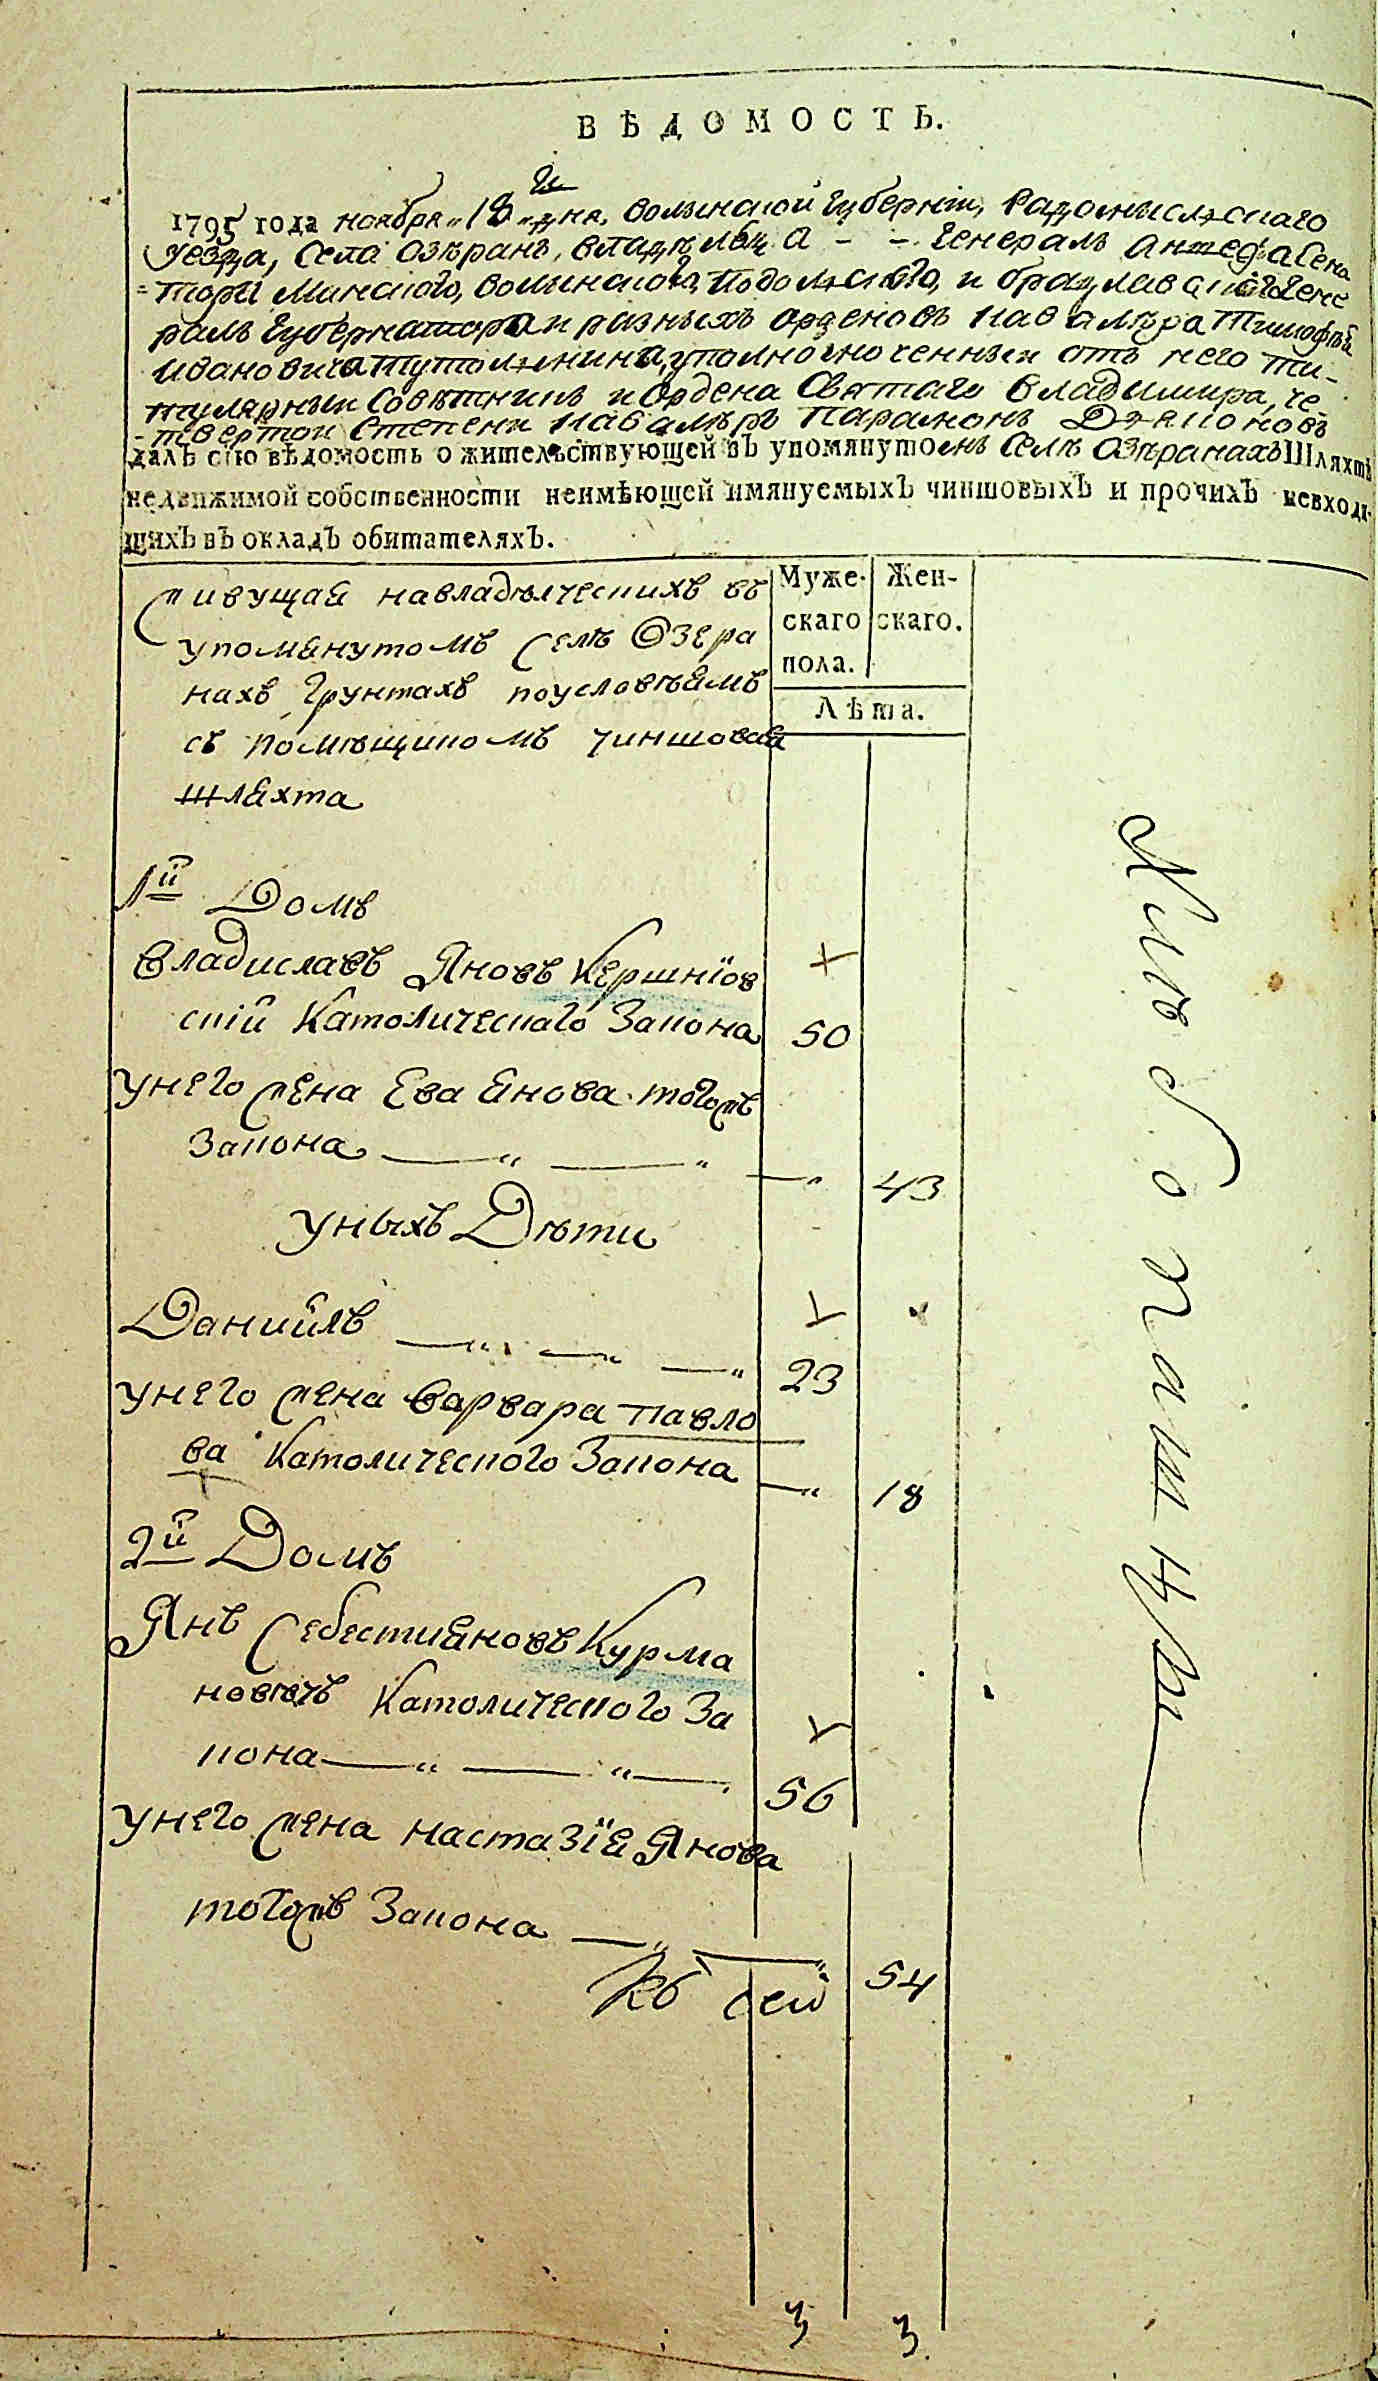 ВѢДОМОСТЬ.
1795 года ноября 18 го дня, волынской губерніи, Радомысльскаго
уезда, села Озѣранъ, владѣльца - - Генералъ аншефа Сена
=тора Минскаго, волынскаго, подольскаго, и брацлавскаго Гене
ралъ Губернатора и разныхъ орденовъ кавалѣра Тимофѣя
Ивановича Тутолмина, уполномоченный отъ него ти-
тулярный совѣтникъ и Ордена Святаго Владимира, че-
-твертой степени кавалѣръ Парамонъ Дьяконовъ
далъ сію вѣдомость о жительствующей въ упомянутомъ селѣ Озѣранахъ Шляхтѣ
недвижимой собственности неимѣющей имянуемыхъ чиншовыхъ и прочихъ невходя-
щихъ въ окладъ обитателяхъ.
Муже- Жен-
скаго скаго.
пола.
Лѣта.
живущая навладѣлческихъ въ
упомянутомъ селѣ Озера
нахъ грунтахъ поусловѣямъ
съ помѣщикомъ чиншовая
шляхта
1й Домъ
Владиславъ Яновъ Кершніов
скій Католическаго Закона 50
унего жена Ева Янова тогожъ
Закона 43
уныхъ Дѣти
Даниилъ 23
унего жена Варвара Павло
ва Католического Закона 18
2й Домъ
Янъ Себестияновъ Курма
новѣчъ Католического За
кона 56
унего жена Настазія Янова
тогожъ Закона 54
Къ сей
3 3